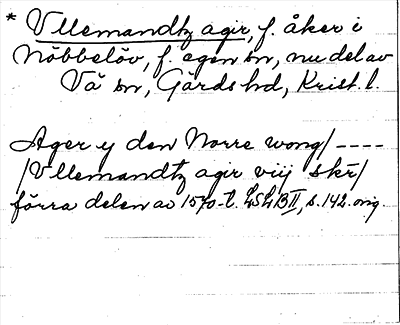 * Vllemandtz agir, f. åker i
Nöbbelöv, f. egen sn, nu del av
Vä sn, Gärds hd, Krist. l.
Ager y den Norre wong/ ----
/Vllemandtz agir viij skr/
förra delen av 1570-t. LSLB II, s. 142. orig.